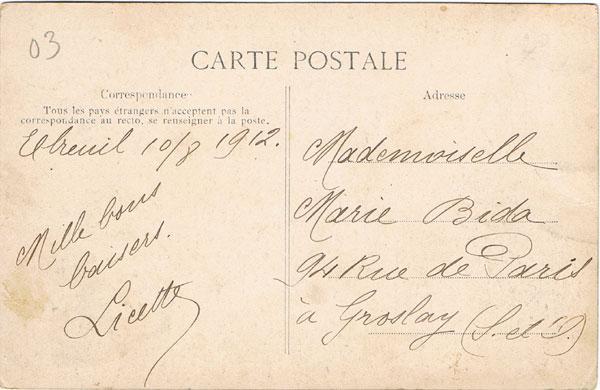 03
CARTE POSTALE
Correspondance
Tous les pays étrangers n'acceptent pas la
correspondance au recto, se renseigner à la poste.
Ebreuil 10/8 1912.
Mille bons
baisers.
Licette
Adresse
Mademoiselle
Marie Bida
94 Rue de Paris
à Groslay (S. et O.)